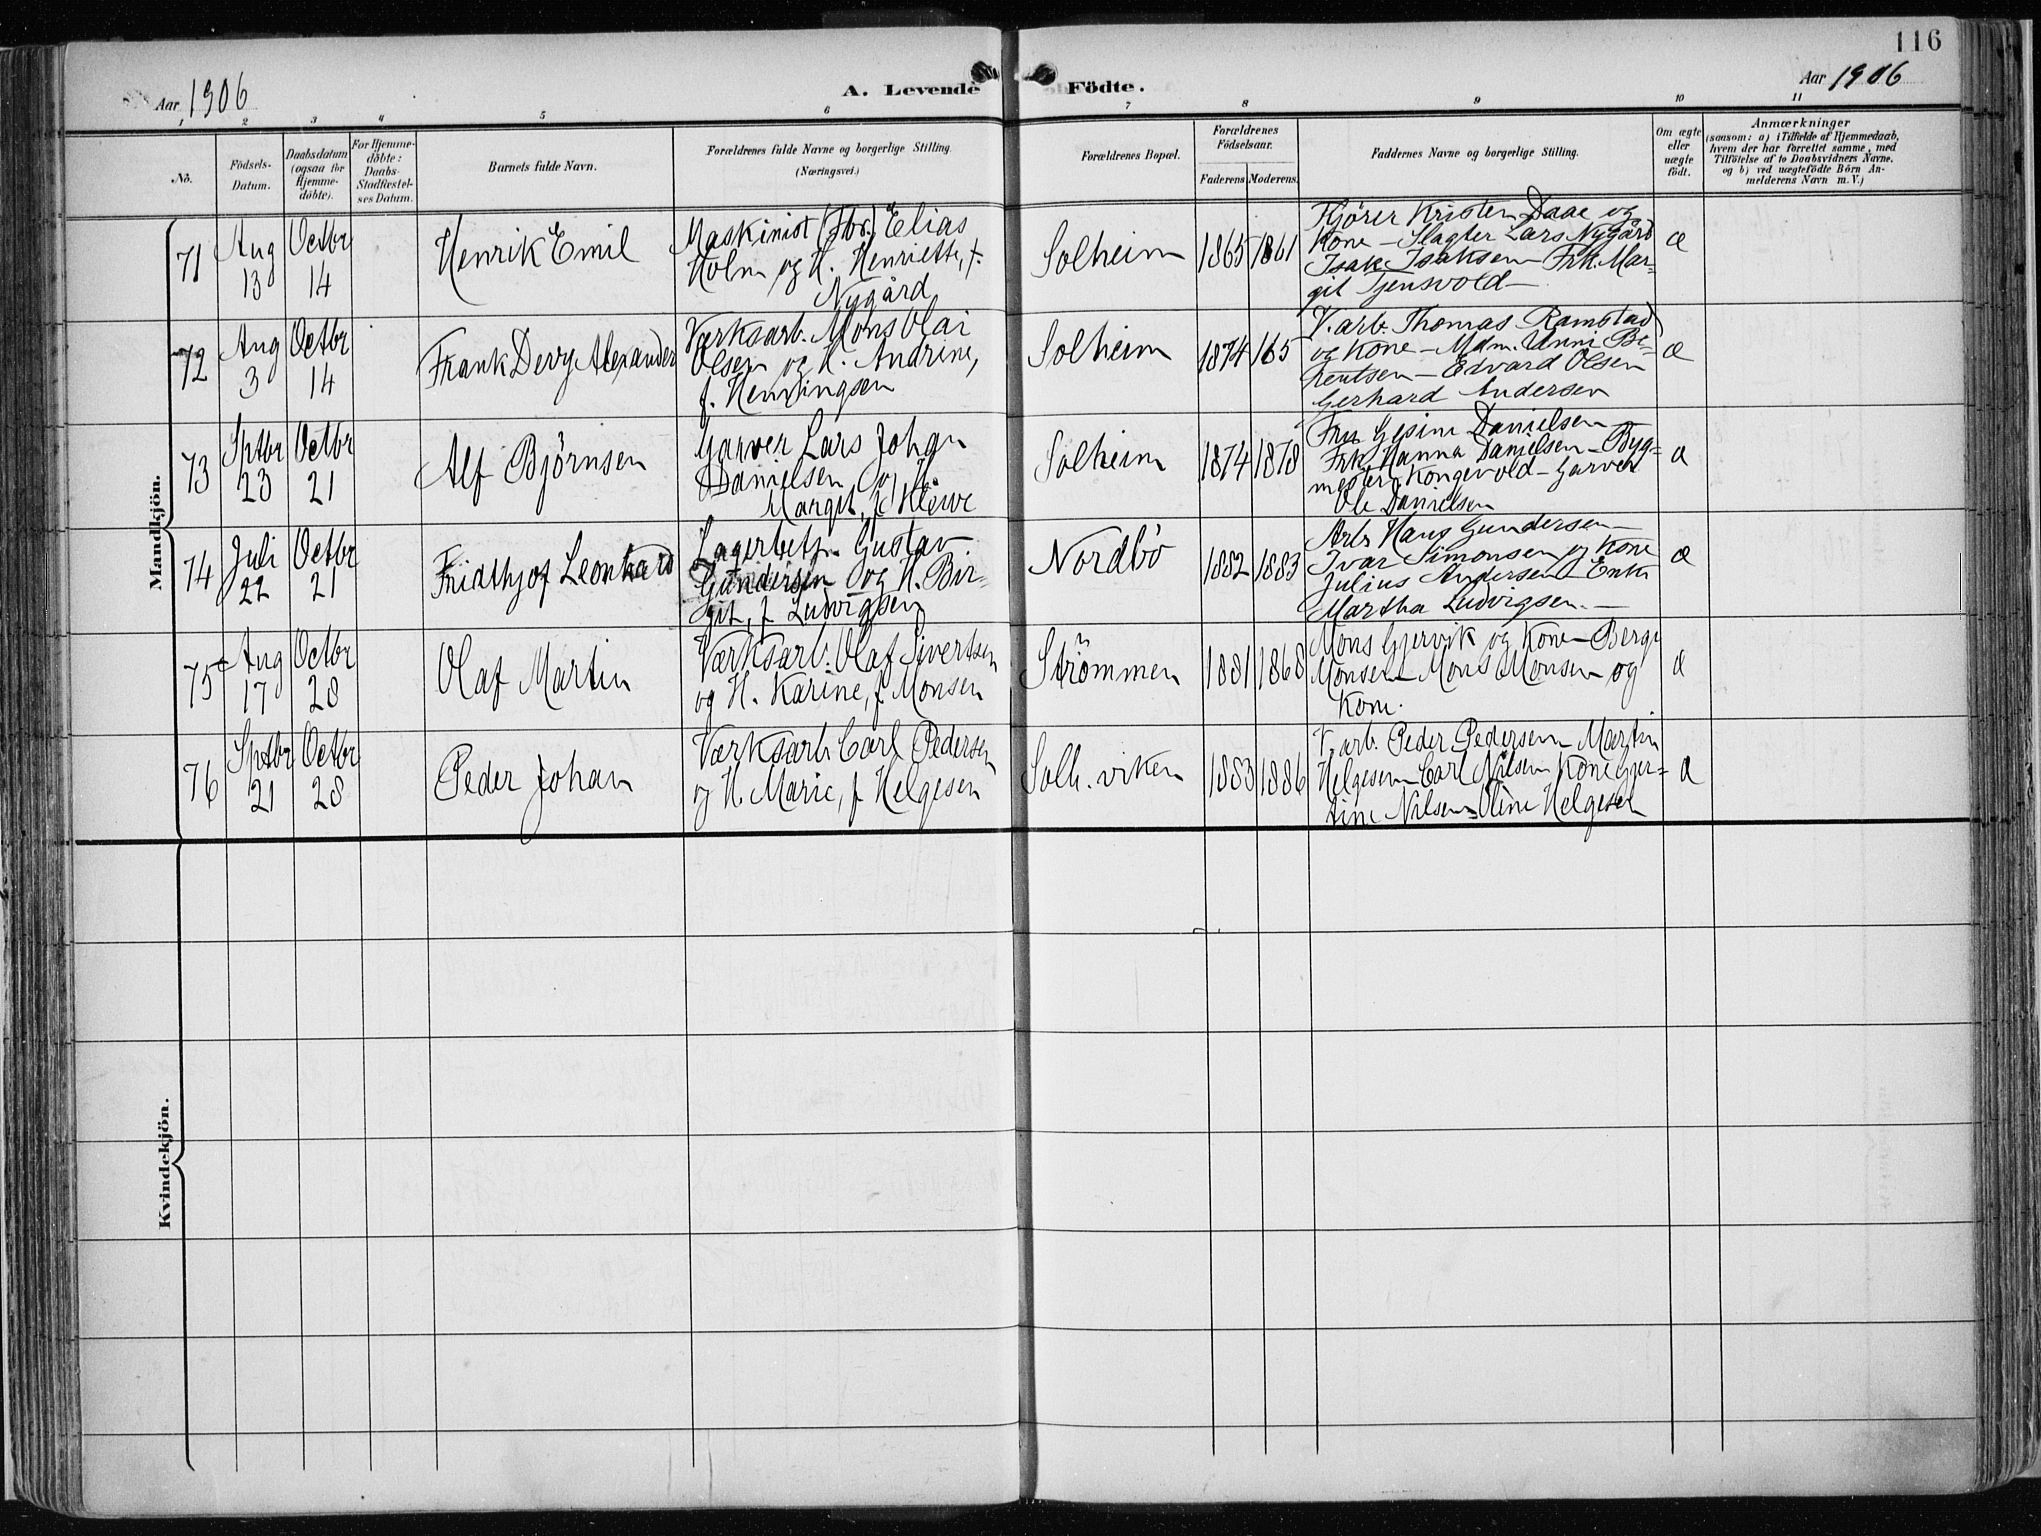 116
Aar 1906
A. Levende Födte.
Aar 1906
1 2 3 4 5 6 7 8 9 10 11
No.
Födsels-
Datum.
Daabsdatum
(ogsaa for
Hjemme-
döbte).
For Hjemme-
döbte:
Daabs-
Stadfæstel-
ses Datum.
Barnets fulde Navn.
Forældrenes fulde Navne og borgerlige Stilling
(Næringsvei.)
Forældrenes Bopæl.
Forældrenes
Födselsaar.
Faderens Moderens.
Faddernes Navne og borgerlige Stilling.
Om ægte
eller
uægte
födt.
Anmærkninger
(saasom: a) i Tilfælde af Hjemmedaab,
hvem der har forrettet samme, med
Tilföielse af to Daabsvidners Navne.
og b) ved uægtefödte Börn An-
melderens Navn m. V.)
Mandkjön.
71
Aug
13
Octbr
14
Henrik Emil
Maskinist Elias
Holm og H. Henriette, f.
Nygård
Solheim
1865
1861
Kristen Daae og
Kone – Slagter Lars Nygård
Isak Isaksen – Frk. Mar-
git Tjensvold –
æ
72
Aug
3
Octbr
14
Frank Devy Alexander
Værksarb. Mons Olai
Olsen og H. Andrine,
f. Henningsen
Solheim
1874
165
V.arb. Thomas Ramstad
og Kone – Mdm. Unni Be-
rentsen – Edvard Olsen
Gerhard Andersen
æ
73
Sptbr
23
Octbr
21
Alf Björnsen
Garver Lars Johan
Danielsen og H.
Margit, f.
Solheim
1874
1878
Fru Gesine Danielsen
Frk. Hanna Danielsen – Byg-
mester Kongsvold – Garver
Ole Danielsen
æ
74
Juli
22
Octbr
21
Fridthjof Leonhard
Lagerbetj. Gustav
Gundersen og H. Bir-
git, f. Ludvigsen
Nordbö
1882
1883
Arb. Hans Gundersen –
Ivar Simonsen og Kone
Julius Andersen – Enke
Martha Ludvigsen. –
æ
75
Aug
17
Octbr
28
Olaf Martin
Værksarb. Olaf Sivertsen
og H. Karine, f. Monsen
Strömmen
1881
1868
Mons Gjervik og Kone – Berge
Monsen – Mons Monsen og
Kone.
æ
76
Sptbr
21
Octbr
28
Peder Johan
Værksarb. Carl Pedersen
og H. Marie, f. Helgesen
Solh. viken
1883
1886
V. arb. Peder Pedersen – Martin
Helgesen – Carl Nilsen Kone Gjer-
tine Nilsen – Oline Helgesen
æ
Kvindekjön.